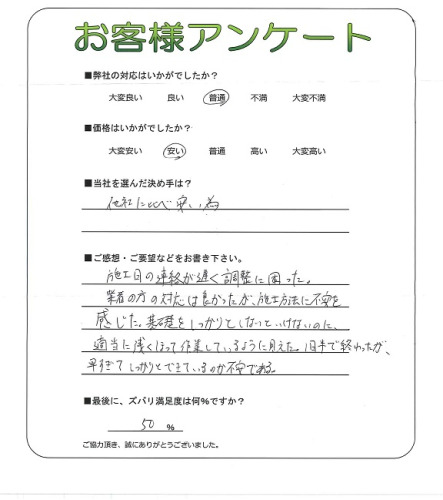 お客様アンケート
■弊社の対応はいかがでしたか?
大変良い 良い 普通 不満 大変不満
■価格はいかがでしたか?
大変安い 安い 普通 高い 大変高い
■当社を選んだ決め手は?
他社に比べ安い為
■ご感想・ご要望などをお書き下さい。
施工日の連絡が遅く調整に困った。
業者の方の対応は良かったが、施工方法に不安を
感じた。基礎をしっかりとしないといけないのに、
適当に浅くほって作業しているように見えた。1日半で終わったが、
早すぎてしっかりとできているのか不安である。
■最後に、ズバリ満足度は何%ですか?
50 %
ご協力頂き、誠にありがとうございました。